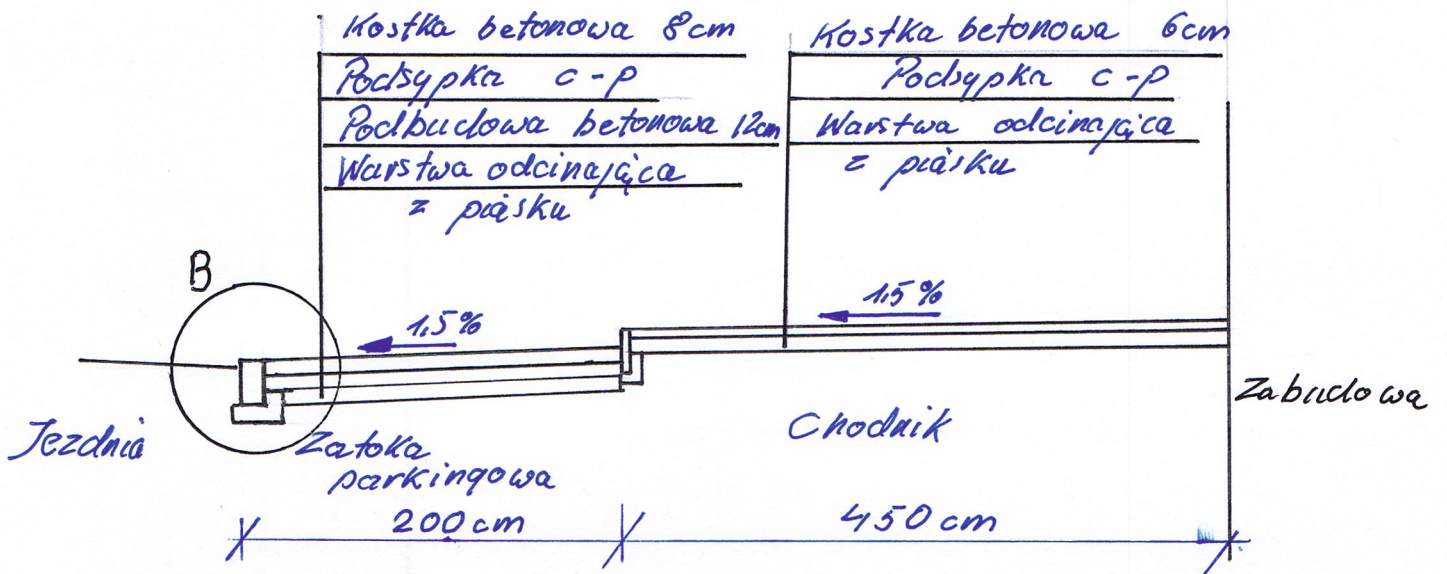 Kostka betonowa 8cm
Podsypka c-p
Podbudowa betonowa 12cm
Warstwa odcinająca
z piasku
Kostka betonowa 6cm
Podsypka c-p
Warstwa odcinająca
z piasku
B
1,5%
1,5%
Zabudowa
Jezdnia
Zatoka
parkingowa
Chodnik
200cm
450cm